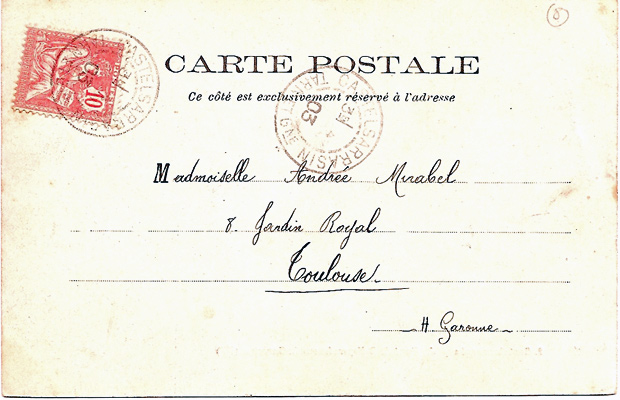 CARTE POSTALE
Ce côté est exclusivement réservé à l'adresse
10
CASTELSARRASIN
TARN
03
Madmoiselle Andrée Mirabel
8. Jardin Royal
Toulouse.
H Garonne